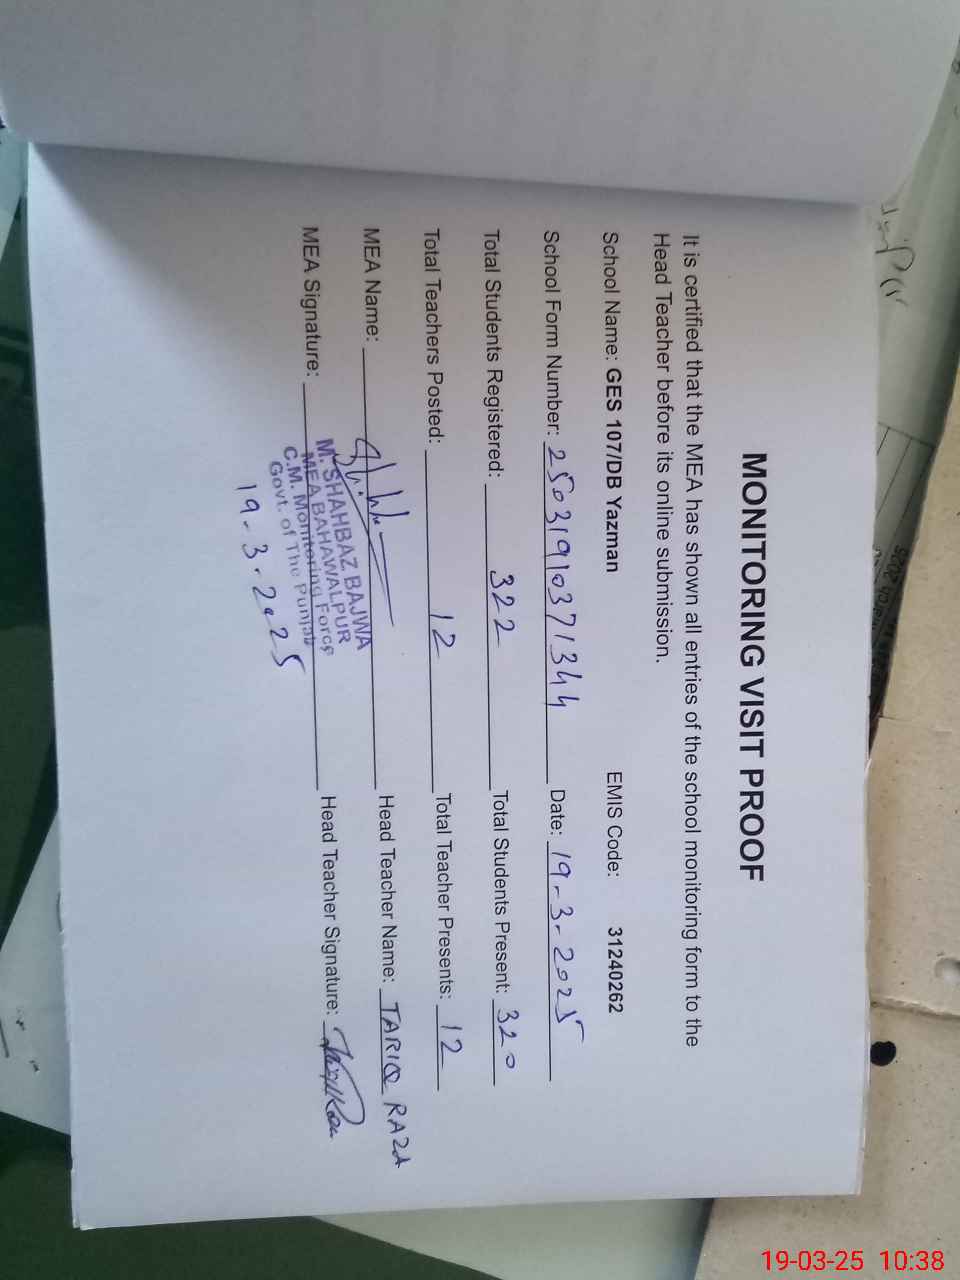 MONITORING VISIT PROOF
It is certified that the MEA has shown all entries of the school monitoring form to the
Head Teacher before its online submission.
School Name: GES 107/DB Yazman EMIS Code: 31240262
School Form Number: 25031910371344 Date: 19-3-2025
Total Students Registered: 322 Total Students Present: 320
Total Teachers Posted: 12 Total Teacher Presents: 12
MEA Name: Head Teacher Name: TARIQ RAZA
MEA Signature: Head Teacher Signature:
M. SHAHBAZ BAJWA
MEA BAHAWALPUR
C.M. Monitoring Force
Govt. of The Punjab
19-3-2025
19-03-25 10:38